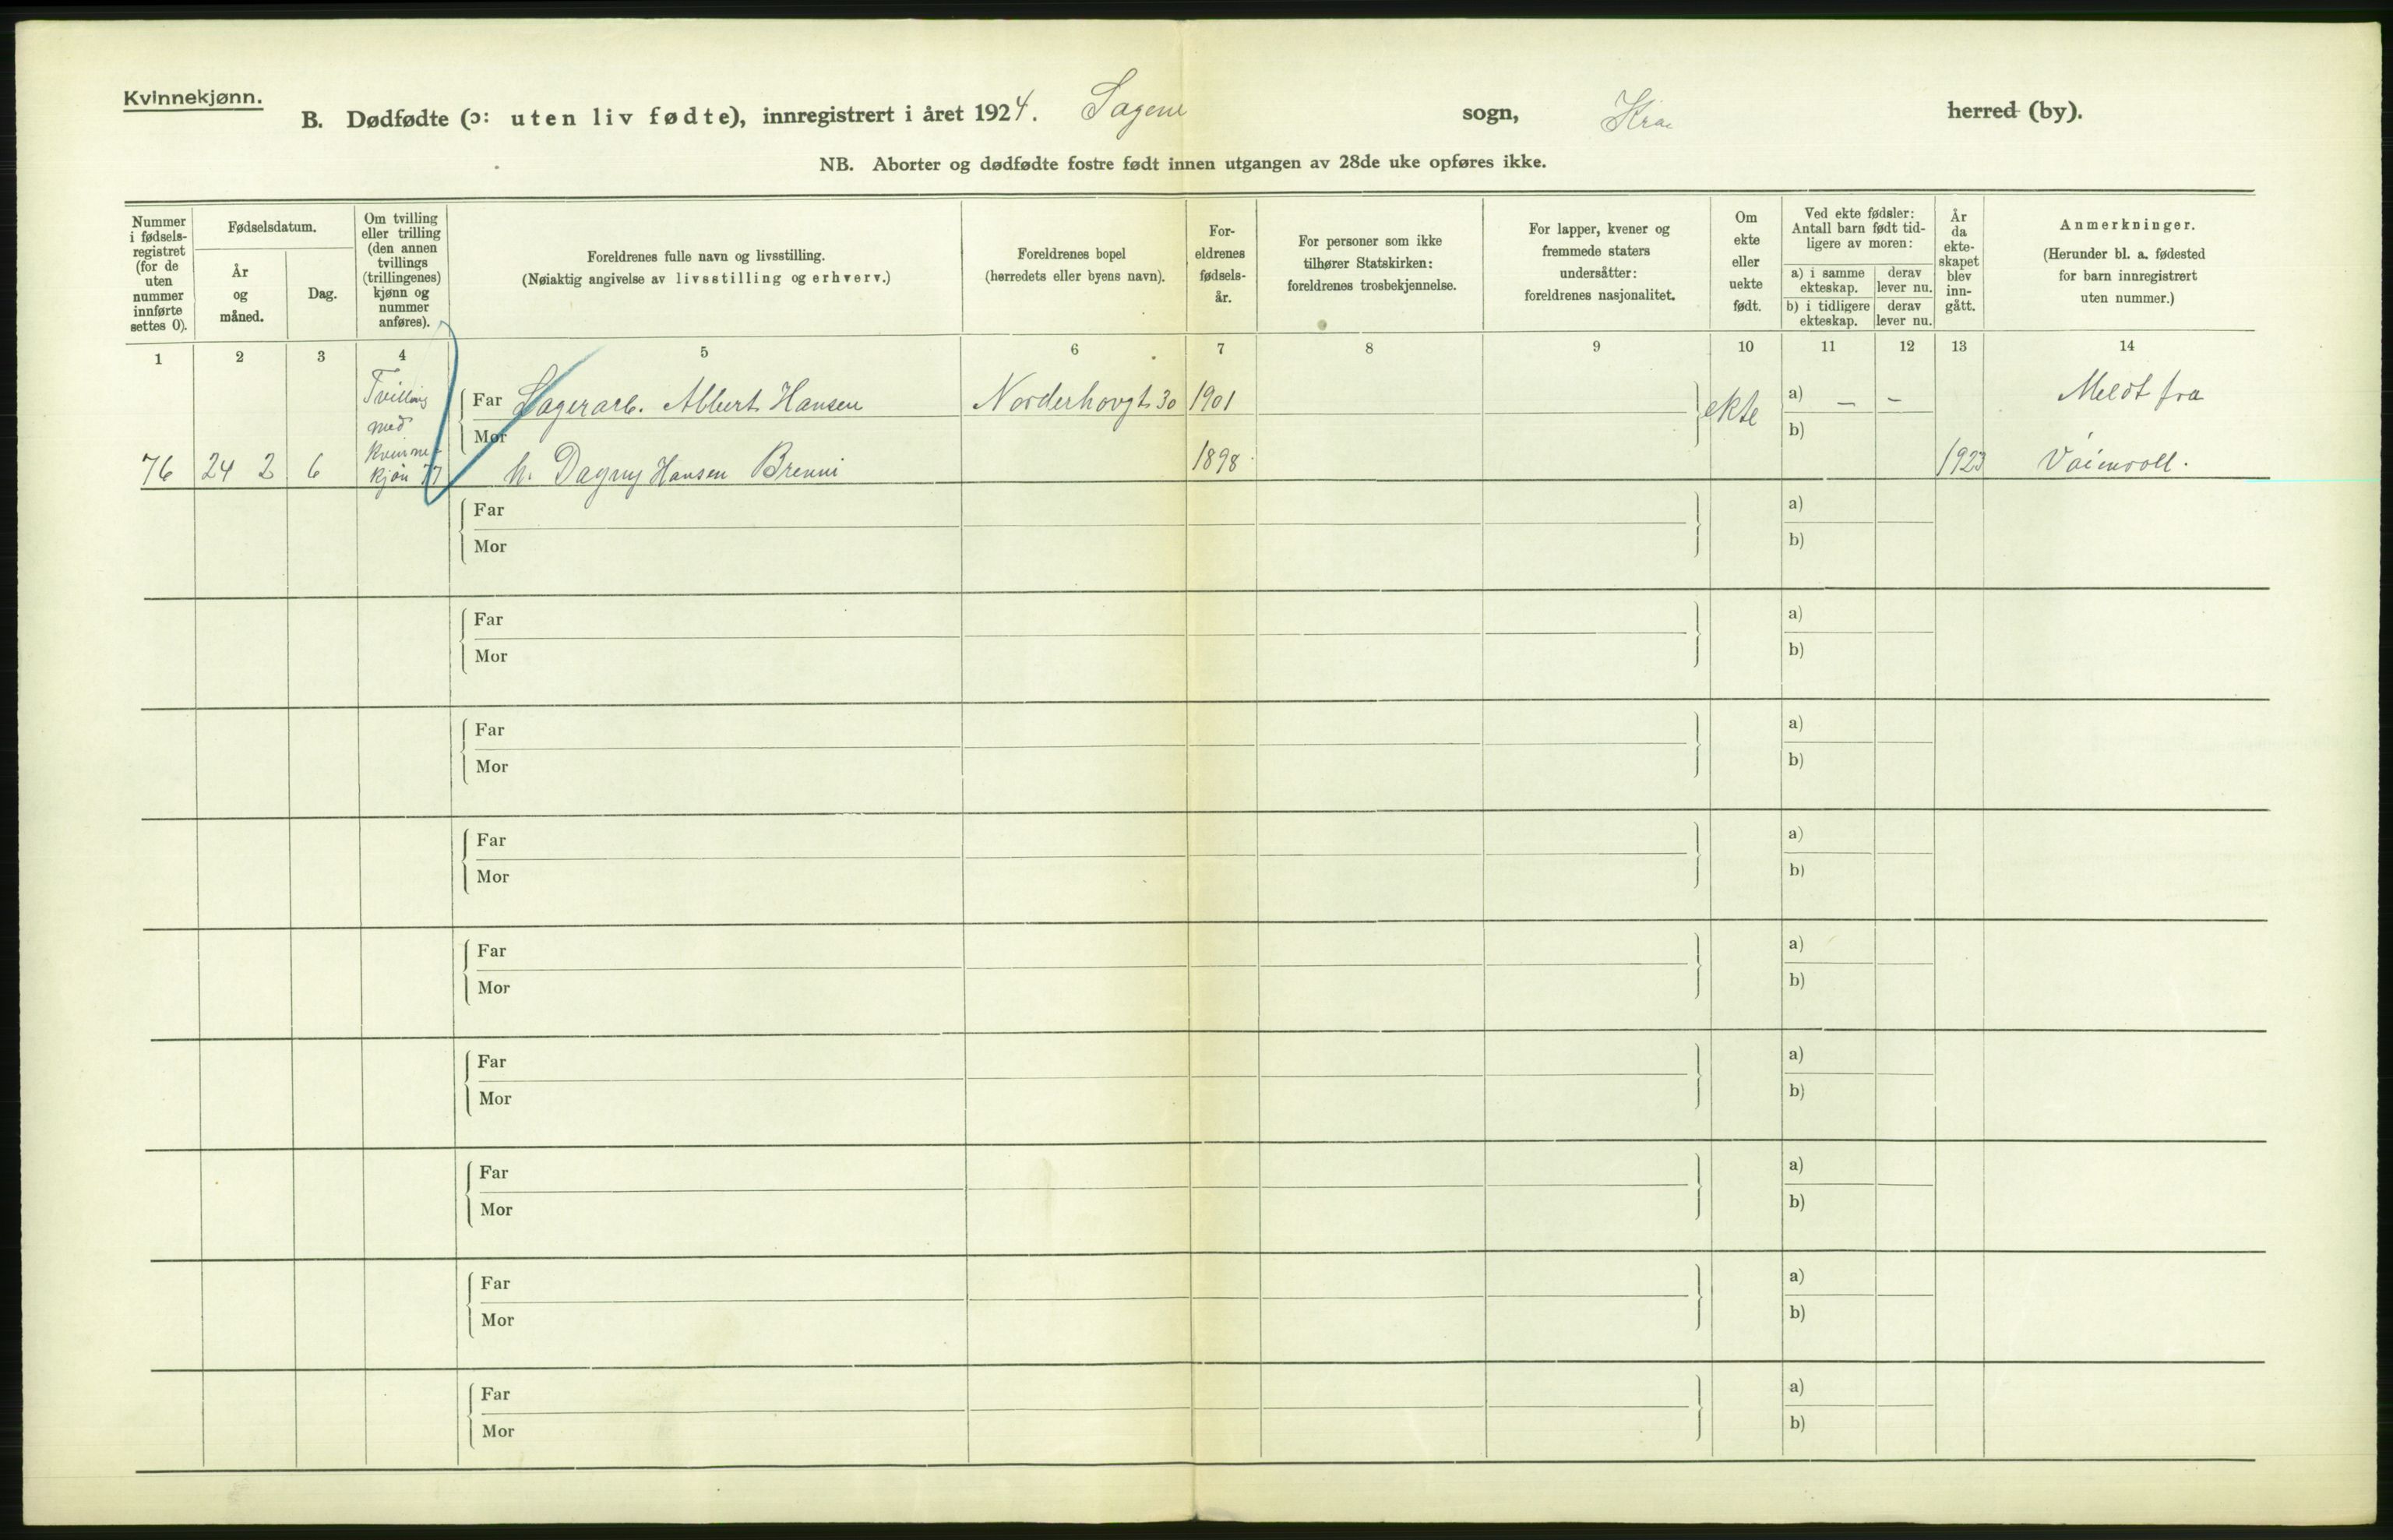 Kvinnekjønn.
B. Dødfødte (ɔ: uten liv fødte), innregistrert i året 1924. Sagene sogn, Kra herred (by).
NB. Aborter og dødfødte fostre født innen utgangen av 28de uke opføres ikke.
Nummer
i fødsels-
registret
(for de
uten
nummer
innførte
settes 0).
Fødselsdatum.
År
og
måned.
Dag.
Om tvilling
eller trilling
(den annen
tvillings
(trillingenes)
kjønn og
nummer
anføres).
Foreldrenes fulle navn og livsstilling.
(Nøiaktig angivelse av livsstilling og erhverv.)
Foreldrenes bopel
(herredets eller byens navn).
For-
eldrenes
fødsels-
år.
For personer som ikke
tilhører Statskirken:
foreldrenes trosbekjennelse.
For lapper, kvener og
fremmede staters
undersåtter:
foreldrenes nasjonalitet.
Om
ekte
eller
uekte
født.
Ved ekte fødsler:
Antall barn født tid-
ligere av moren:
a) i samme
ekteskap.
derav
lever nu.
b) i tidligere
ekteskap.
derav
lever nu.
År
da
ekte-
skapet
blev
inn-
gått.
Anmerkninger.
(Herunder bl. a. fødested
for barn innregistrert
uten nummer.)
1 2 3 4 5 6 7 8 9 10 11 12 13 14
Tvilling
med
Kvinne-
kjøn 77
Far Lagerarb. Albert Hansen Norderhovgt 30 1901 ekte a) — — Meldt fra
Mor b)
76 24 2 6 h. Dagny Hansen Brenni 1898 1923 Vøienvoll.
Far a)
Mor b)
Far a)
Mor b)
Far a)
Mor b)
Far a)
Mor b)
Far a)
Mor b)
Far a)
Mor b)
Far a)
Mor b)
Far a)
Mor b)
Far a)
Mor b)